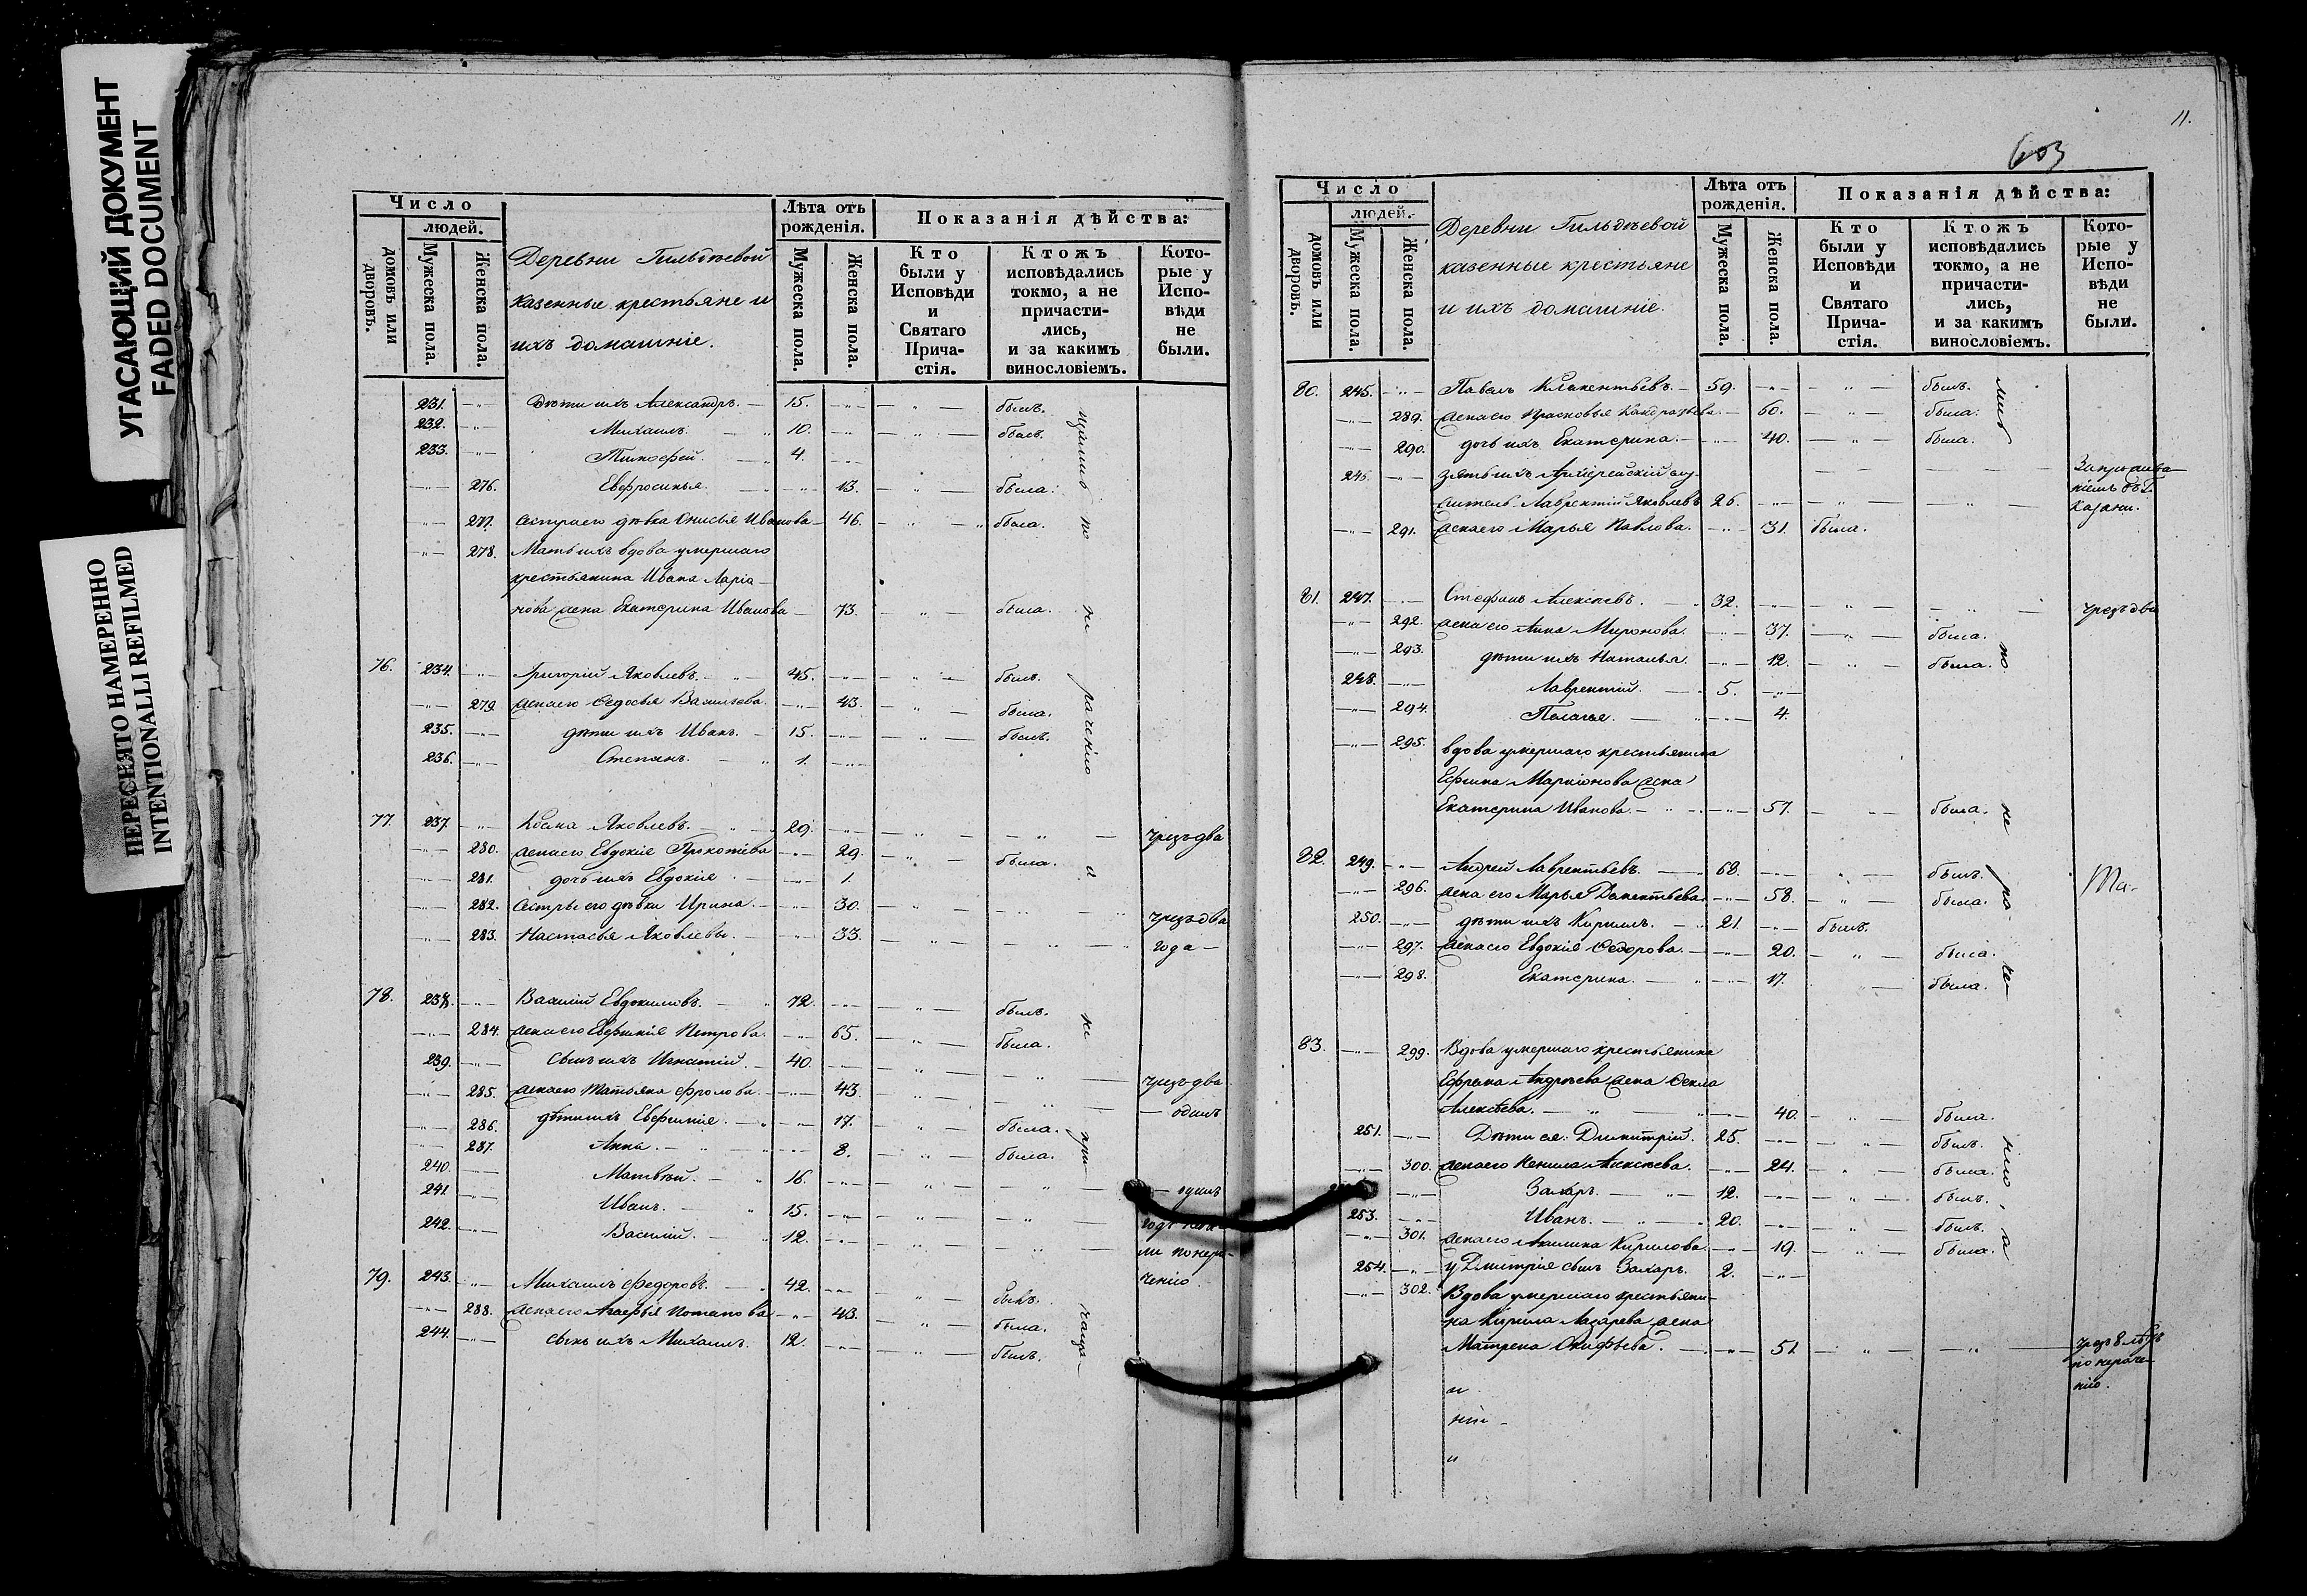 УГАСАЮЩИЙ ДОКУМЕНТ
FADED DOCUMENT
ПЕРЕСНЯТО НАМЕРЕННО
INTENTIONALLI REFILMED
Число
людей.
домовъ или дворовъ.
Мужеска пола.
Женска пола.
Деревни Гильдѣевой
казенные крестьяне и
ихъ домашніе.
Лѣта отъ рожденія.
Мужеска пола.
Женска пола.
Показанія дѣйства:
Кто были у Исповѣди и Святаго Прича-стія.
Ктожъ исповѣдались токмо, а не причасти-лись, и за какимъ винословіемъ.
Кото-рые у Испо-вѣди не были.
231. Дѣти ихъ Александръ. 15. былъ.
232. Михаилъ. 10. былъ.
233. Тимофей. 4.
276. Евфросинья. 13. была.
277. сестра его дѣвка Анисья Иванова 46. была.
278. Мать ихъ вдова умершаго
крестьянина Ивана Ларіо-
нова жена Екатерина Иванова 73. была.
76. 234. Григорій Яковлевъ. 45. былъ.
279. жена его Федосья Васильева 43. была.
235. дѣти ихъ Иванъ. 15. былъ.
236. Степанъ. 1.
77. 237. Козма Яковлевъ. 29. чрезъ два
280. жена его Евдокія Прокопьева 29. была.
281. дочь ихъ Евдокія 1.
282. сестры его дѣвки Ирина. 30. чрезъ два
283. Настасья Яковлевы. 33. года
78. 238. Василій Евдокимовъ. 72. былъ.
284. жена его Евфимія Петрова. 65. была.
239. сынъ ихъ Игнатій. 40. чрезъ два
285. жена его Татьяна Фролова. 43. одинъ
286. дѣти ихъ Евфимія. 17. была.
287. Анна. 8. была.
240. Матвѣй. 16. одинъ
241. Иванъ. 15. годъ
242. Василій. 12. ли по нера-
79. 243. Михаилъ Федоровъ. 42. ченію былъ.
288. жена его Агафья Потапова 43. была.
244. сынъ ихъ Михаилъ. 12. былъ.
по
не
раченію
а
не
при
11.
603
Число
людей.
домовъ или дворовъ.
Мужеска пола.
Женска пола.
Деревни Гильдѣевой
казенные крестьяне
и ихъ домашніе.
Лѣта отъ рожденія.
Мужеска пола.
Женска пола.
Показанія дѣйства:
Кто были у Исповѣди и Святаго Прича-стія.
Ктожъ исповѣдались токмо, а не причасти-лись, и за какимъ винословіемъ.
Кото-рые у Испо-вѣди не были.
80. 245. Павелъ 59. былъ.
289. жена его Прасковья Кондратьева 60. была.
290. дочь ихъ Екатерина. 40. была.
246. зять ихъ Архіерейскій слу-
житель Лаврентій Яковлевъ 26. въ Г. Казани.
291. жена его Марья Павлова. 31. была.
81. 247. Стефанъ Алексѣевъ. 32. чрезъ два
292. жена его Анна Миронова. 37. была.
293. дѣти ихъ Наталья. 12. была.
248. Лаврентій. 5.
294. Пелагея. 4.
295. вдова умершаго крестьянина
Ефима Маркіонова жена
Екатерина Иванова. 57. была.
82. 249. Андрей Лаврентьевъ. 68. былъ.
296. жена его Марья 58. была.
250. дѣти ихъ Кирилъ. 21. былъ.
297. жена его Евдокія Федорова. 20. была.
298. Екатерина. 17. была.
83. 299. Вдова умершаго крестьянина
Ефрема Андреева жена Фекла
Алексѣева. 40. была.
251. Дѣти ея: Димитрій. 25. былъ.
300. жена его Ненила Алексѣева. 24. была.
Захаръ. 12. былъ.
253. Иванъ. 20. былъ.
301. жена его Акилина Кирилова. 19. была.
254. у Дмитрія сынъ Захаръ. 2.
302. Вдова умершаго крестьяни-
на Кирила Лазарева жена
Матрена 51. чрезъ
по нераче-
нію.
по
не
ра
че
нію
а